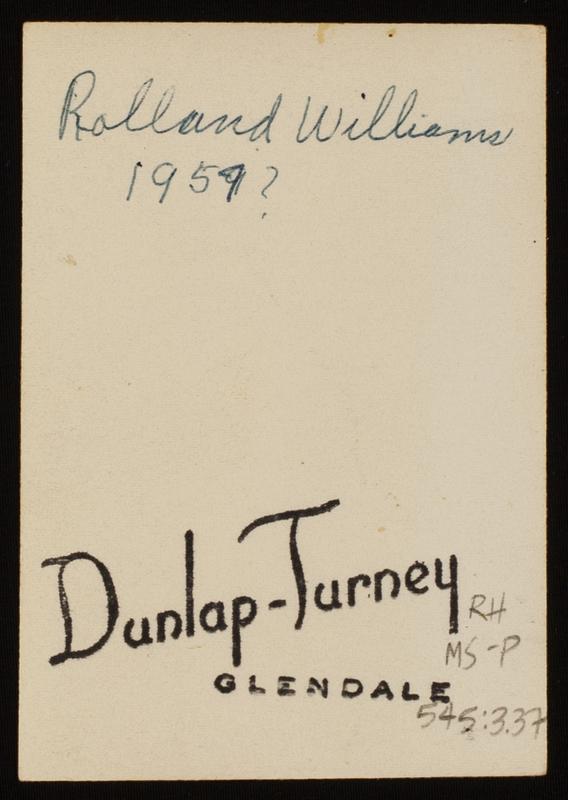 Rolland Williams
1959?
Dunlap-Turney
GLENDALE
RH
MS-P
545:3.37